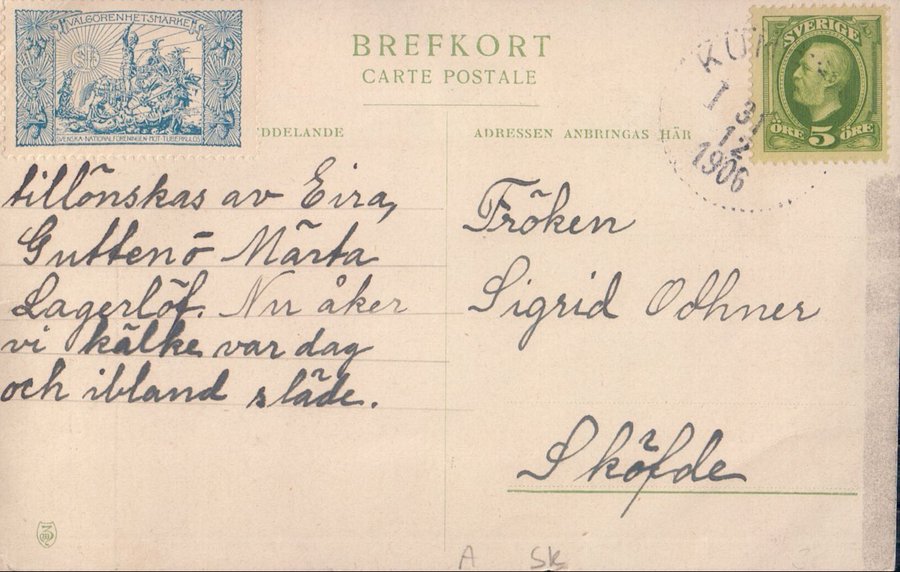 VÄLGÖRENHETSMÄRKE
SVENSKA NATIONALFÖRENINGEN MOT TUBERKULOS
BREFKORT
CARTE POSTALE
DDELANDE
ADRESSEN ANBRINGAS HÄR
SVERIGE
ÖRE 5 ÖRE
KUM
31
12
1906
tillönskas av Eira,
Guttenö Märta
Lagerlöf. Nu åker
vi kälke var dag
och ibland släde.
Fröken
Sigrid Odhner
Sköfde
A SK